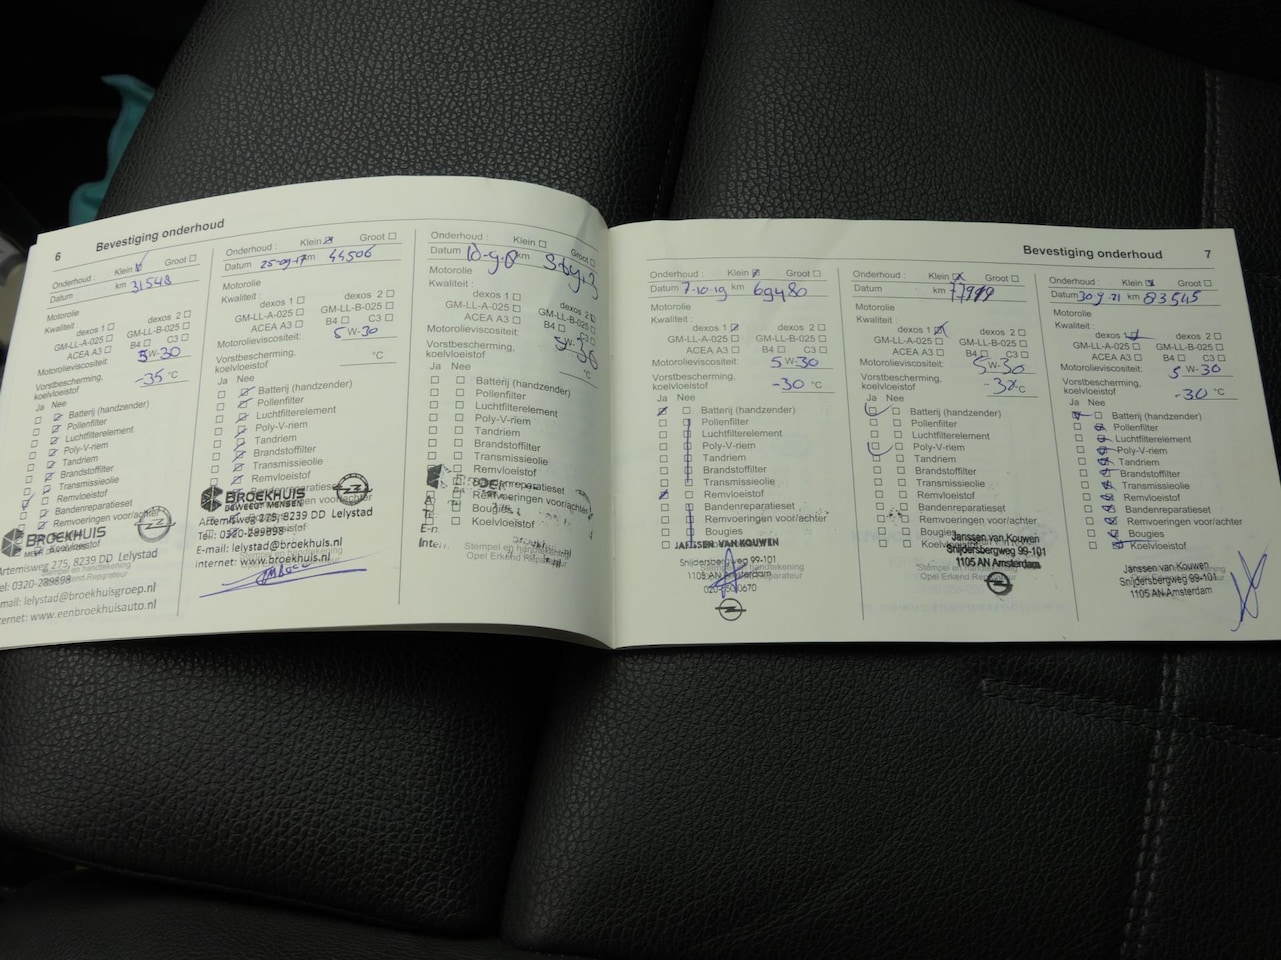 6 Bevestiging onderhoud
Onderhoud : Klein Groot
Datum km 31548
Motorolie
Kwaliteit : dexos 1 dexos 2
GM-LL-A-025 GM-LL-B-025
ACEA A3 B4 C3
Motorolieviscositeit: 5 W-30
Vorstbescherming,
koelvloeistof -35 °C
Ja Nee
Batterij (handzender)
Pollenfilter
Luchtfilterelement
Poly-V-riem
Tandriem
Brandstoffilter
Transmissieolie
Remvloeistof
Bandenreparatieset
Remvoeringen voor/achter
Koelvloeistof
BROEKHUIS
Artemisweg 275, 8239 DD Lelystad
Tel: 0320-289898
E-mail: lelystad@broekhuisgroep.nl
Internet: www.eenbroekhuisauto.nl
Onderhoud : Klein Groot
Datum 25-09-17 km 44506
Motorolie
Kwaliteit : dexos 1 dexos 2
GM-LL-A-025 GM-LL-B-025
ACEA A3 B4 C3
Motorolieviscositeit: 5 W-30
Vorstbescherming,
koelvloeistof °C
Ja Nee
Batterij (handzender)
Pollenfilter
Luchtfilterelement
Poly-V-riem
Tandriem
Brandstoffilter
Transmissieolie
Remvloeistof
BROEKHUIS
BEWEEGT MENSEN
Artemisweg 275, 8239 DD Lelystad
Tel: 0320-289898
E-mail: lelystad@broekhuis.nl
Internet: www.broekhuis.nl
Onderhoud : Klein Groot
Datum km
Motorolie
Kwaliteit : dexos 1 dexos 2
GM-LL-A-025 GM-LL-B-025
ACEA A3 B4 C3
Motorolieviscositeit:
Vorstbescherming,
koelvloeistof °C
Ja Nee
Batterij (handzender)
Pollenfilter
Luchtfilterelement
Poly-V-riem
Tandriem
Brandstoffilter
Transmissieolie
Remvloeistof
Bandenreparatieset
Remvoeringen voor/achter
Bougies
Koelvloeistof
Stempel en handtekening
Opel Erkend Reparateur
Bevestiging onderhoud 7
Onderhoud : Klein Groot
Datum 7-10-19 km 69480
Motorolie
Kwaliteit : dexos 1 dexos 2
GM-LL-A-025 GM-LL-B-025
ACEA A3 B4 C3
Motorolieviscositeit: 5 W-30
Vorstbescherming,
koelvloeistof -30 °C
Ja Nee
Batterij (handzender)
Pollenfilter
Luchtfilterelement
Poly-V-riem
Tandriem
Brandstoffilter
Transmissieolie
Remvloeistof
Bandenreparatieset
Remvoeringen voor/achter
Bougies
JANSSEN VAN KOUWEN
Snijdersbergweg 99-101
1105 AN Amsterdam
Onderhoud : Klein Groot
Datum km
Motorolie
Kwaliteit : dexos 1 dexos 2
GM-LL-A-025 GM-LL-B-025
ACEA A3 B4 C3
Motorolieviscositeit: 5 W-30
Vorstbescherming,
koelvloeistof °C
Ja Nee
Batterij (handzender)
Pollenfilter
Luchtfilterelement
Poly-V-riem
Tandriem
Brandstoffilter
Transmissieolie
Remvloeistof
Bandenreparatieset
Remvoeringen voor/achter
Bougies
Janssen van Kouwen
Snijdersbergweg 99-101
1105 AN Amsterdam
Stempel en handtekening
Opel Erkend Reparateur
Onderhoud : Klein Groot
Datum 30-9-21 km 83545
Motorolie
Kwaliteit : dexos 1 dexos 2
GM-LL-A-025 GM-LL-B-025
ACEA A3 B4 C3
Motorolieviscositeit: 5 W-30
Vorstbescherming,
koelvloeistof -30 °C
Ja Nee
Batterij (handzender)
Pollenfilter
Luchtfilterelement
Poly-V-riem
Tandriem
Brandstoffilter
Transmissieolie
Remvloeistof
Bandenreparatieset
Remvoeringen voor/achter
Bougies
Koelvloeistof
Janssen van Kouwen
Snijdersbergweg 99-101
1105 AN Amsterdam